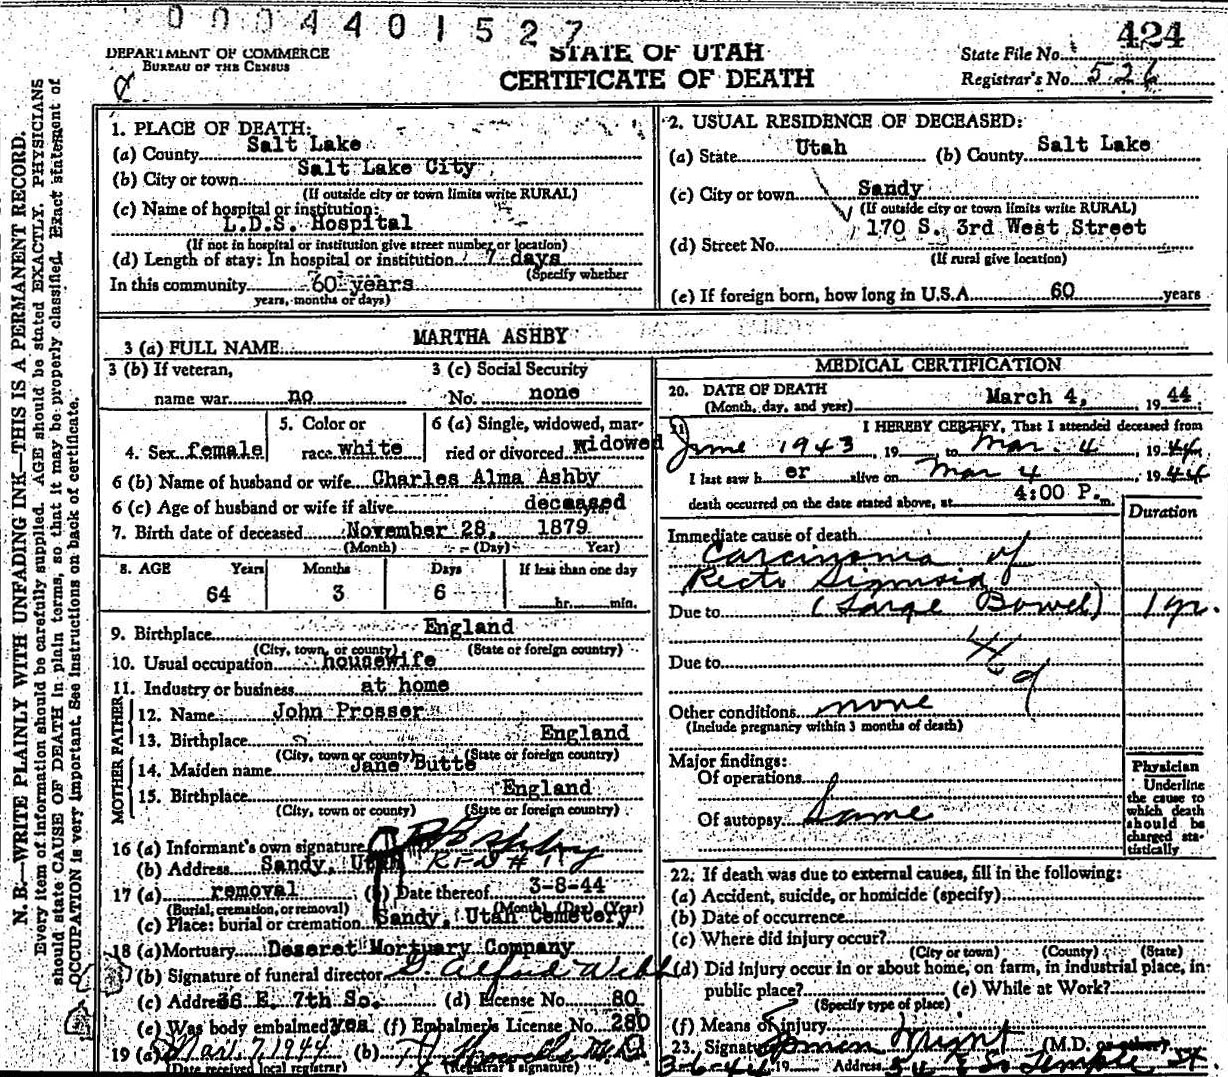 0004401527
424
DEPARTMENT OF COMMERCE
BUREAU OF THE CENSUS
STATE OF UTAH
CERTIFICATE OF DEATH
State File No.
Registrar's No. 526
N. B.—WRITE PLAINLY WITH UNFADING INK—THIS IS A PERMANENT RECORD.
Every item of information should be carefully supplied. AGE should be stated EXACTLY. PHYSICIANS
should state CAUSE OF DEATH in plain terms, so that it may be properly classified. Exact statement of
OCCUPATION is very important. See instructions on back of certificate.
1. PLACE OF DEATH:
(a) County Salt Lake
(b) City or town Salt Lake City
(If outside city or town limits write RURAL)
(c) Name of hospital or institution:
L.D.S. Hospital
(If not in hospital or institution give street number or location)
(d) Length of stay: In hospital or institution 7 days
(Specify whether
In this community 60 years
years, months or days)
2. USUAL RESIDENCE OF DECEASED:
(a) State Utah (b) County Salt Lake
(c) City or town Sandy
(If outside city or town limits write RURAL)
(d) Street No. 170 S. 3rd West Street
(If rural give location)
(e) If foreign born, how long in U.S.A. 60 years
3 (a) FULL NAME MARTHA ASHBY
3 (b) If veteran,
name war no
3 (c) Social Security
No. none
4. Sex female
5. Color or
race white
6 (a) Single, widowed, mar-
ried or divorced widowed
6 (b) Name of husband or wife Charles Alma Ashby
6 (c) Age of husband or wife if alive deceased
7. Birth date of deceased November 28, 1879
(Month) (Day) Year)
8. AGE Years Months Days If less than one day
64 3 6 hr. min.
9. Birthplace England
(City, town, or county) (State or foreign country)
10. Usual occupation housewife
11. Industry or business at home
FATHER
12. Name John Prosser
13. Birthplace England
(City, town or county) (State or foreign country)
MOTHER
14. Maiden name Jane Butte
15. Birthplace England
(City, town, or county) (State or foreign country)
16 (a) Informant's own signature Ashby
(b) Address Sandy, Utah R.F.D # 1
17 (a) removal (b) Date thereof 3-8-44
(Burial, cremation, or removal) (Month) (Day) (Year)
(c) Place: burial or cremation Sandy, Utah Cemetery
18 (a) Mortuary Deseret Mortuary Company
(b) Signature of funeral director Alfred Webb
(c) Address 36 E. 7th So. (d) License No. 80
(e) Was body embalmed yes (f) Embalmer's License No. 280
19 (a) Mar 7, 1944 (b) M.D.
(Date received local registrar) (Registrar's signature)
MEDICAL CERTIFICATION
20. DATE OF DEATH
(Month, day, and year) March 4, 1944
21 I HEREBY CERTIFY, That I attended deceased from
June 1943, 19 to Mar. 4, 1944
I last saw her alive on Mar 4 1944
death occurred on the date stated above, at 4:00 P. m.
Duration
Immediate cause of death
Carcinoma of
Recto Sigmoid
Due to (Large Bowel) 1 yr.
Due to
Other conditions none
(Include pregnancy within 3 months of death)
Major findings:
Of operations
Of autopsy Same
Physician
Underline
the cause to
which death
should be
charged sta-
tistically
22. If death was due to external causes, fill in the following:
(a) Accident, suicide, or homicide (specify)
(b) Date of occurrence
(c) Where did injury occur?
(City or town) (County) (State)
(d) Did injury occur in or about home, on farm, in industrial place, in
public place? (e) While at Work?
(Specify type of place)
(f) Means of injury
23. Signature (M.D. or other)
3-6-44 19 Address 54 E So Temple St.